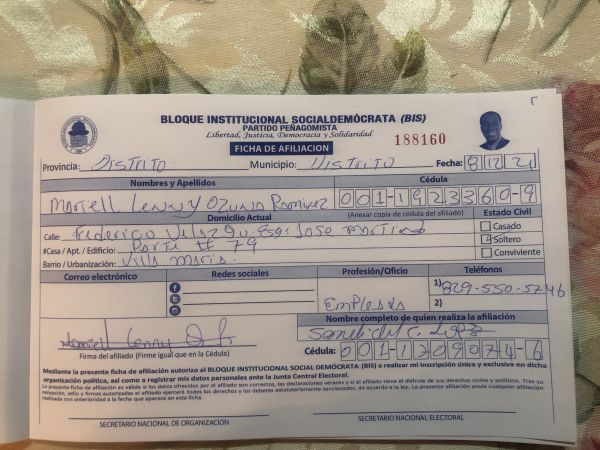 BLOQUE INSTITUCIONAL SOCIALDEMÓCRATA (BIS)
PARTIDO PEÑAGOMISTA
Libertad, Justicia, Democracia y Solidaridad
188160
FICHA DE AFILIACION
Provincia: DISTRITO Municipio: DISTRITO Fecha: 8/12/21
Nombres y Apellidos Cédula
Mariell Lenny Ozuna Ramirez 001-1923360-9
Domicilio Actual (Anexar copia de cédula del afiliado) Estado Civil
Calle: Federico Velazqu. Esq: Jose Martines
Casado
#Casa / Apt. / Edificio: Parte # 79
Soltero
Barrio / Urbanización: Villa Maria
Conviviente
Correo electrónico Redes sociales Profesión/Oficio Teléfonos
1) 829-550-5746
Empleada 2)
Nombre completo de quien realiza la afiliación
Firma del afiliado (Firme igual que en la Cédula) Cédula: 001-1209074-6
Mediante la presente ficha de afiliación autorizo al BLOQUE INSTITUCIONAL SOCIAL DEMÓCRATA (BIS) a realizar mi inscripción única y exclusiva en dicha
organización política, así como a registrar mis datos personales ante la Junta Central Electoral.
La presente ficha de afiliación es válida si los datos ofrecidos por el afiliado son correctos, las declaraciones veraces y si el afiliado tiene el disfrute de sus derechos civiles y políticos. Tras su
recepción, sello y firmas autorizadas el afiliado ejercerá todos los derechos y los deberes estatutariamente sancionados, de acuerdo a la ley. La presente afiliación anula cualquier afiliación
realizada con anterioridad a la fecha que aparece en esta ficha.
SECRETARIO NACIONAL DE ORGANIZACIÓN SECRETARIO NACIONAL ELECTORAL